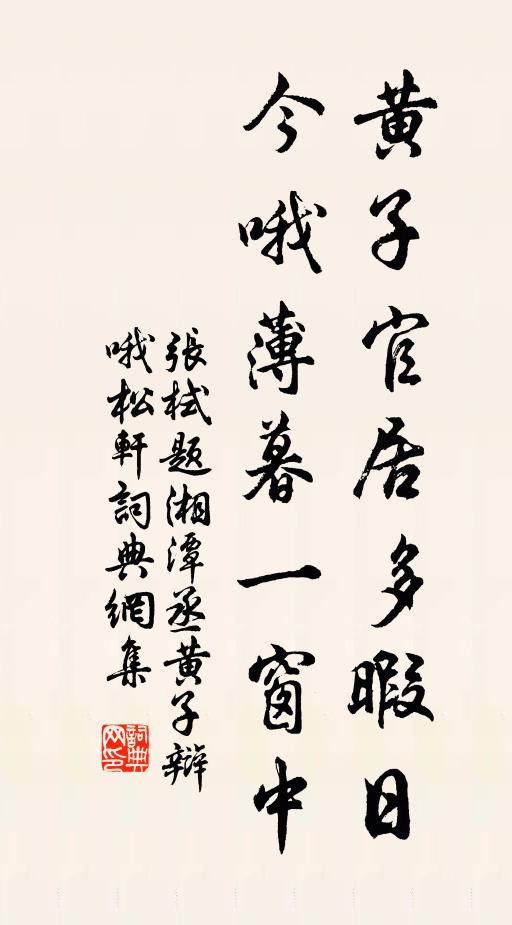 黃子官居多暇日
今哦薄暮一窗中
張栻题湘潭丞黃子辯
哦松軒詞典網集
詞典
网印